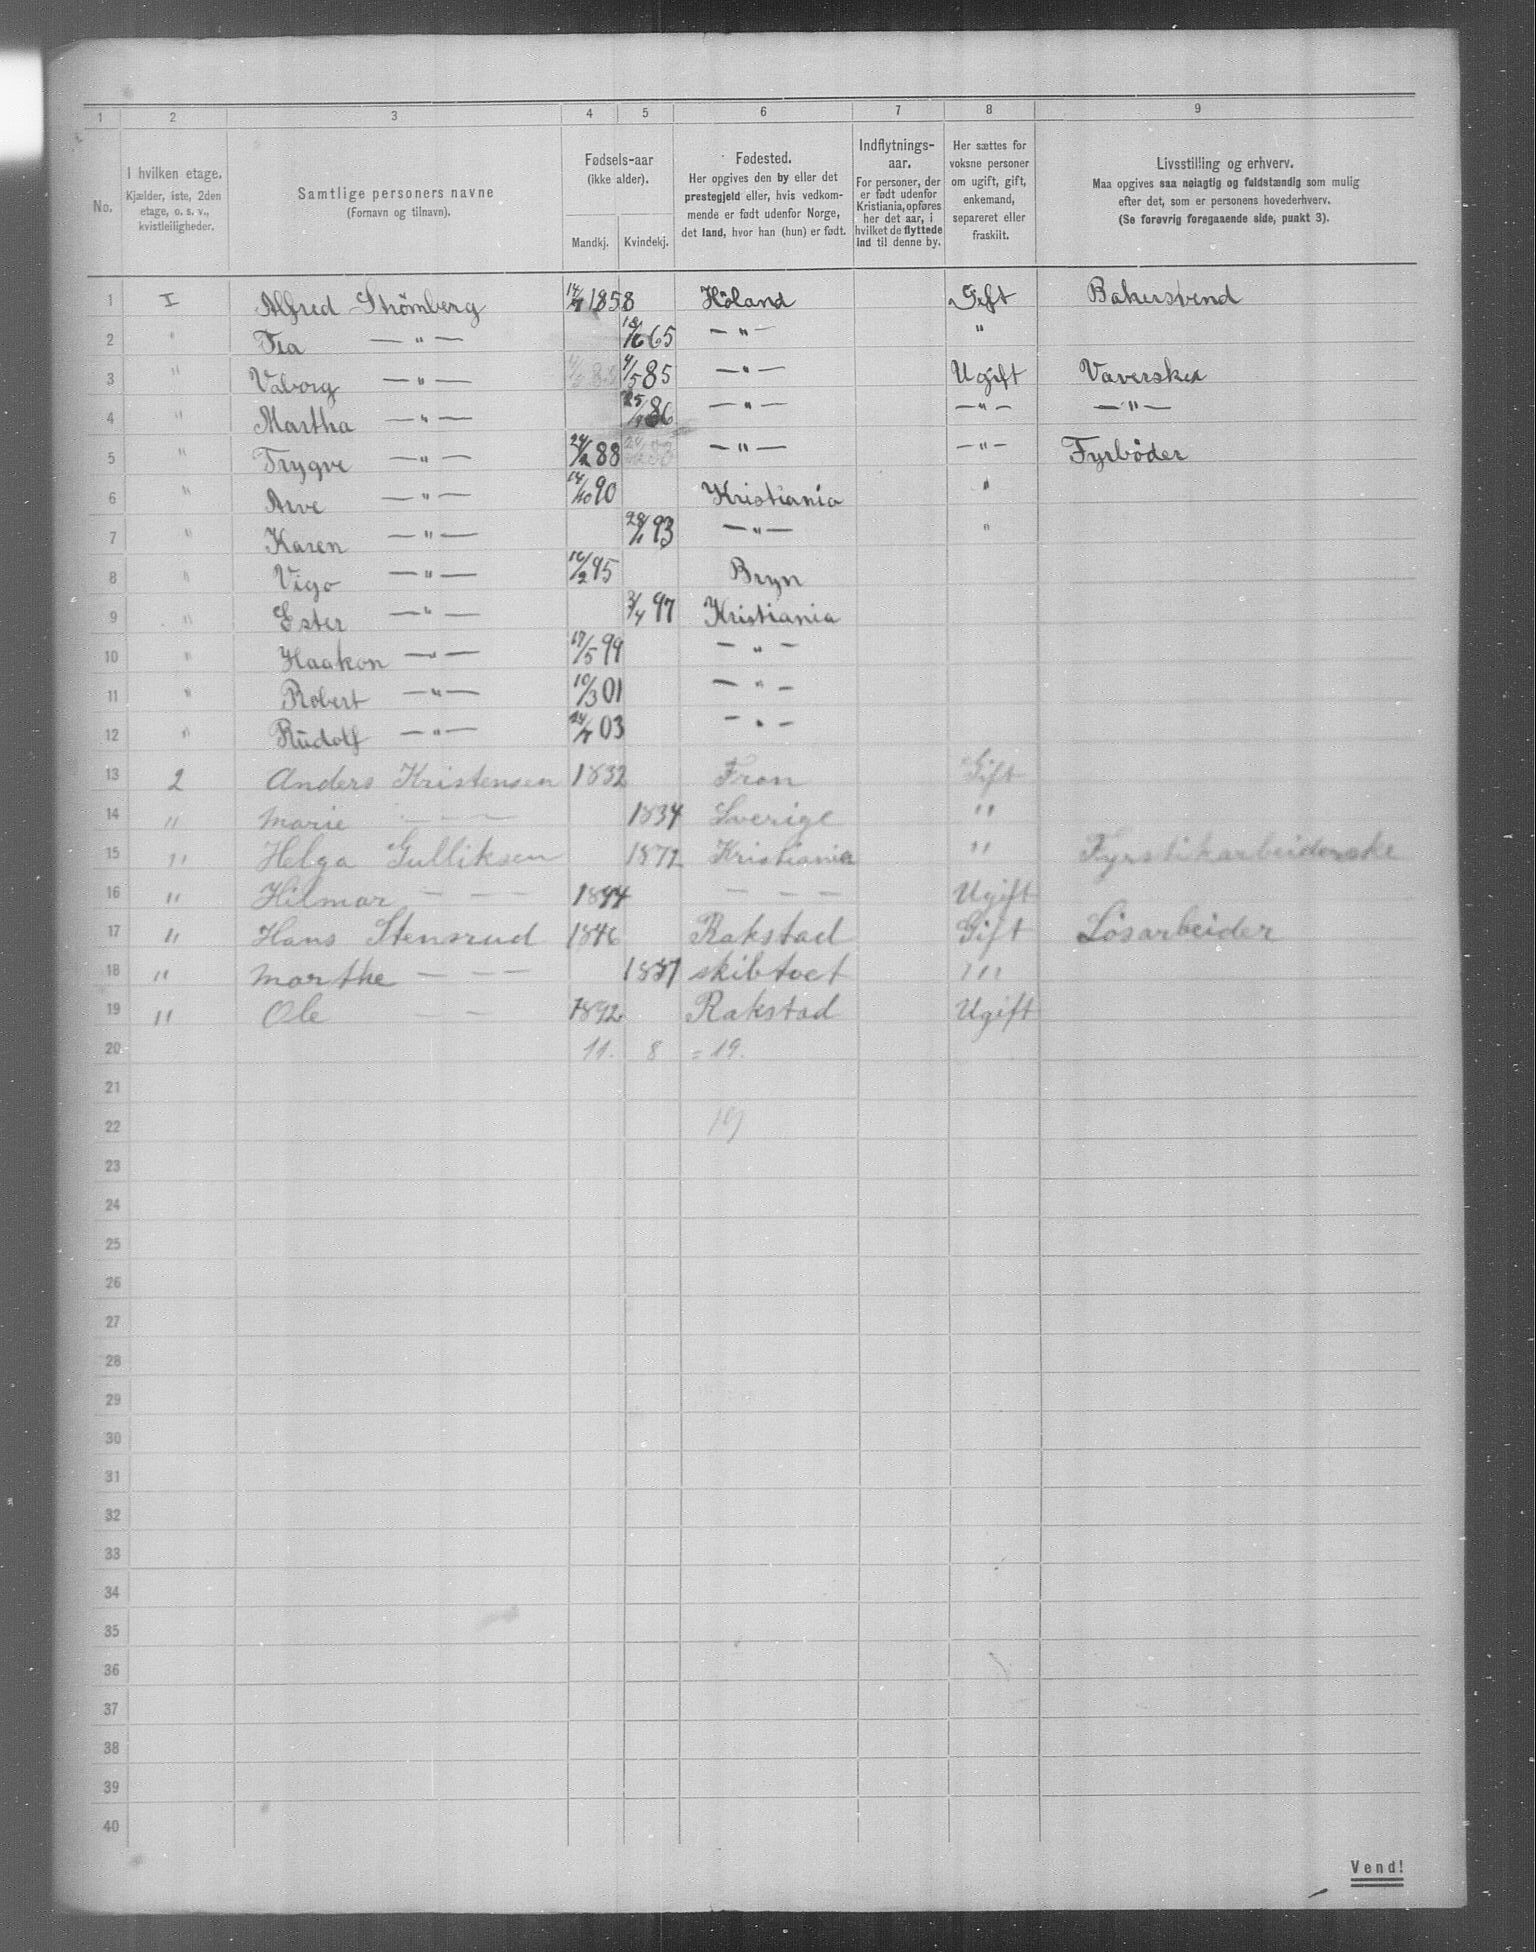 1 2 3 4 5 6 7 8 9
No.
I hvilken etage.
Kjælder, iste, 2den
etage, o. s. v.,
kvistleiligheder.
Samtlige personers navne
(Fornavn og tilnavn).
Fødsels-aar
(ikke alder).
Mandkj. Kvindekj.
Fødested.
Her opgives den by eller det
prestegjeld eller, hvis vedkom-
mende er født udenfor Norge,
det land, hvor han (hun) er født.
Indflytnings-
aar.
For personer, der
er født udenfor
Kristiania, opføres
her det aar, i
hvilket de flyttede
ind til denne by.
Her sættes for
voksne personer
om ugift, gift,
enkemand,
separeret eller
fraskilt.
Livsstilling og erhverv.
Maa opgives saa nøiagtig og fuldstændig som mulig
efter det, som er personens hovederhverv.
(Se forøvrig foregaaende side, punkt 3).
1 I Alfred Strömberg 14/7 1858 Höland Gift Bakersvend
2 " Fra — " — 65 — " — "
3 " Valborg — " — 4/5 85 — " — Ugift Væverske
4 " Martha — " — 25/ 86 — " — — " — — " —
5 " Trygve — " — 24/2 88 — " — — " — Fyrböder
6 " Arve — " — 14/10 90 Kristiania "
7 " Karen — " — 93 — " — "
8 " Vigo — " — 16/2 95 Bryn
9 " Ester — " — 3/4 97 Kristiania
10 " Haakon — " — 17/5 99 — " —
11 " Robert — " — 10/3 01 — " —
12 " Rudolf — " — 24/7 03 — " —
13 2 Anders Kristensen 1832 Fron Gift
14 " Marie — — — 1834 Sverige "
15 " Helga Gulliksen 1872 Kristiania " Fyrstikarbeiderske
16 " Hilmar — — 1894 — — — Ugift
17 " Hans Stensrud 1846 Rakstad Gift Lösarbeider
18 " Marthe — — — 1837 skibtvet "
19 " Ole — — 1892 Rakstad Ugift
20 11. 8 = 19.
21
22 19
23
24
25
26
27
28
29
30
31
32
33
34
35
36
37
38
39
40
Vend!